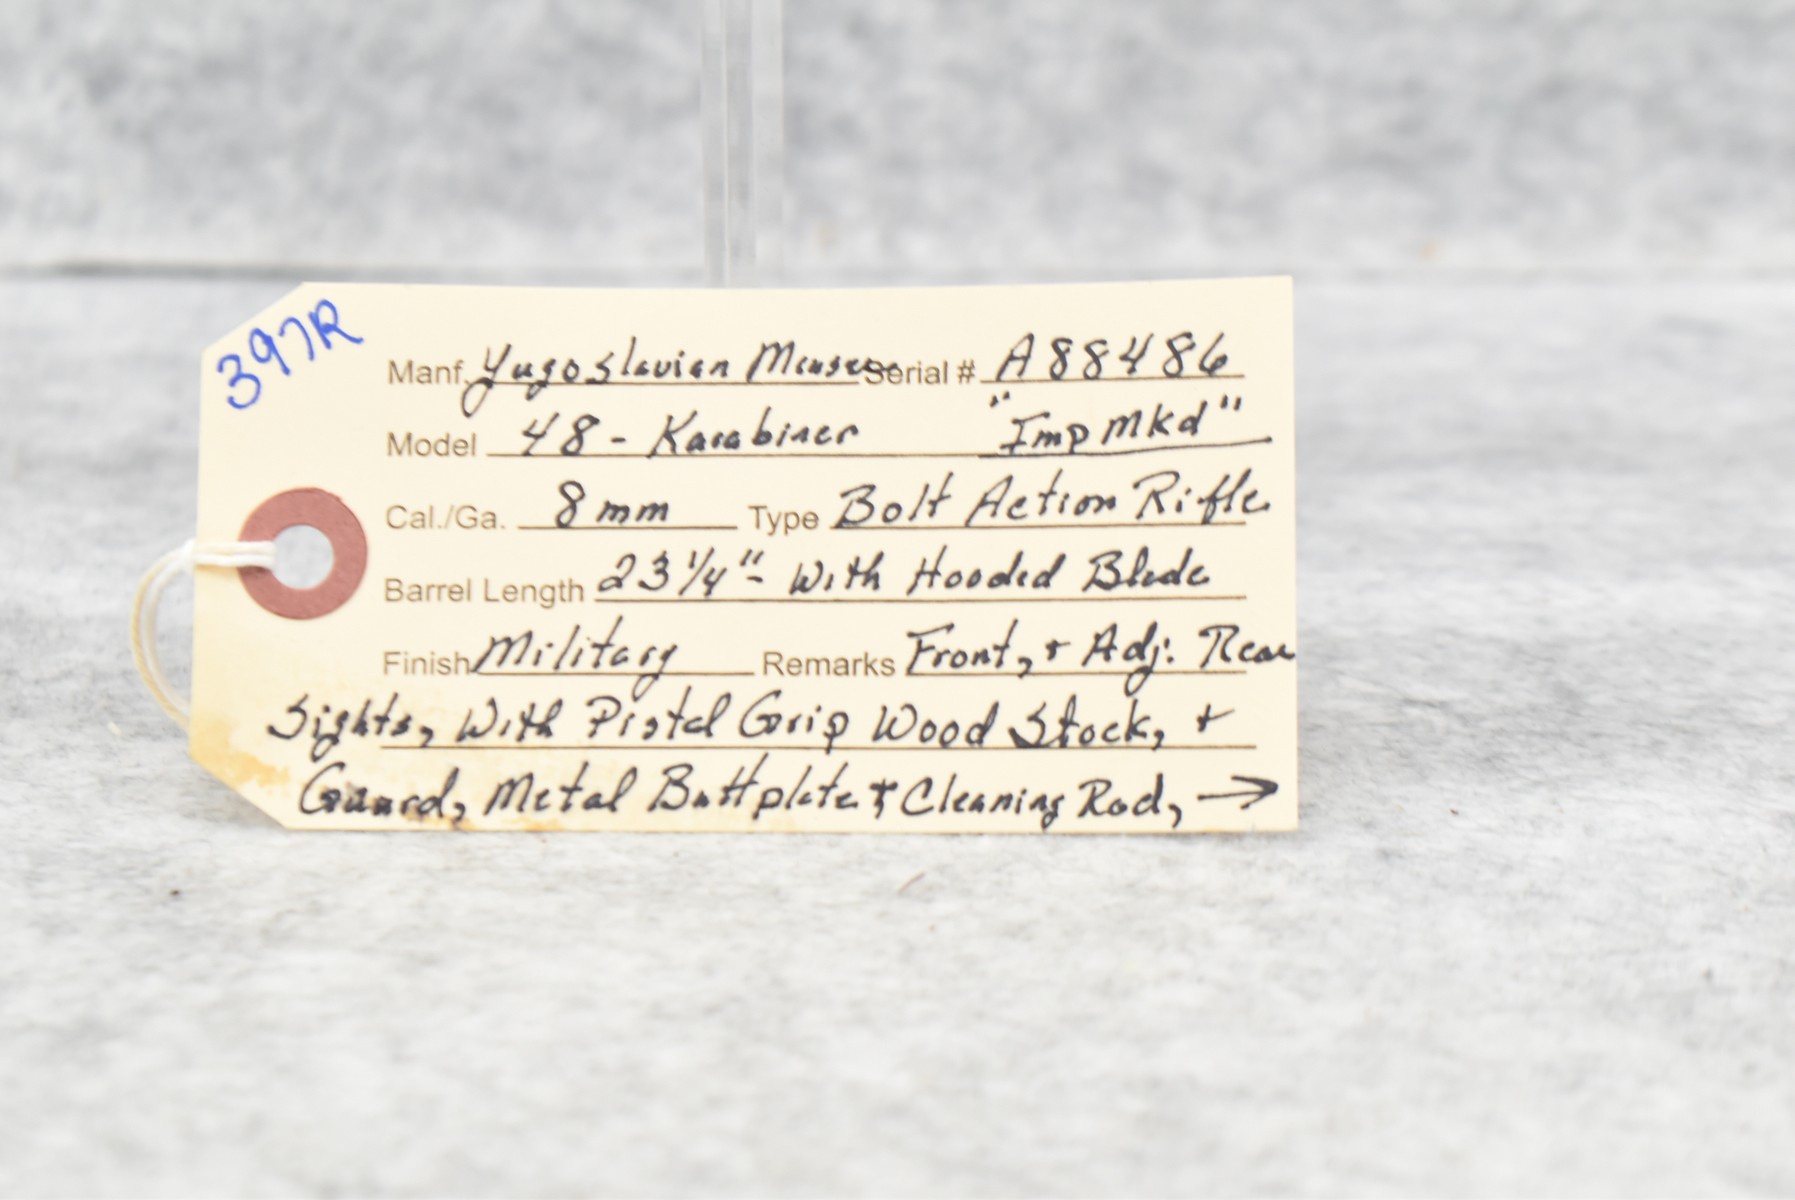 397R
Manf. Yugoslavian Mauser Serial # A88486
Model 48 - Karabiner "Imp Mkd"
Cal./Ga. 8mm Type Bolt Action Rifle
Barrel Length 23 1/4" - With Hooded Blade
Finish Military Remarks Front, + Adj. Rear
Sights, With Pistol Grip Wood Stock, +
Guard, Metal Buttplate + Cleaning Rod, →